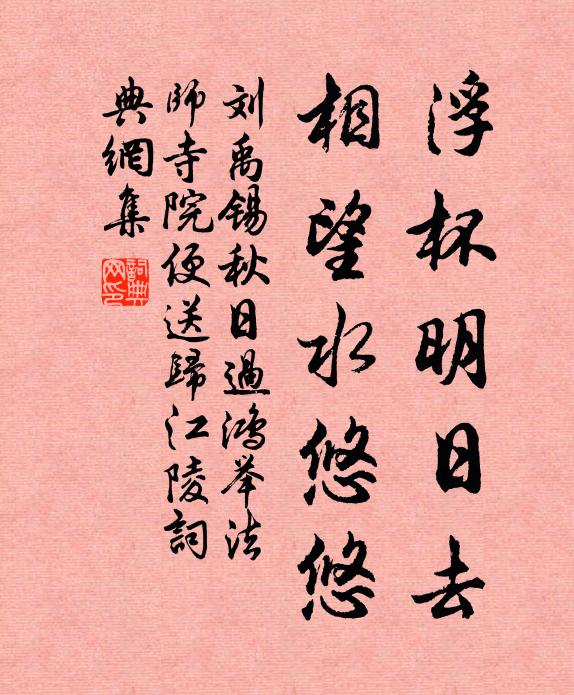 浮杯明日去
相望水悠悠
刘禹锡秋日過鸿举法
師寺院便送歸江陵詞
典網集
詞典网印